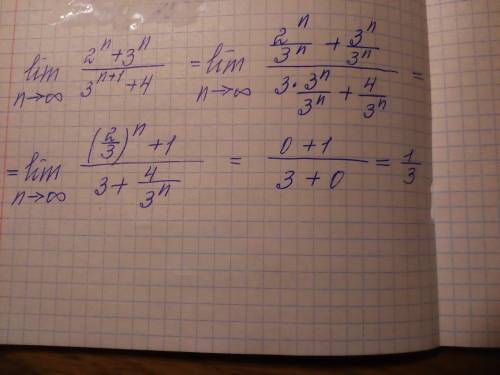 lim n→∞ (2^n + 3^n)/(3^(n+1) + 4) = lim n→∞ (2^n/3^n + 3^n/3^n)/(3 · 3^n/3^n + 4/3^n) =
= lim n→∞ ((2/3)^n + 1)/(3 + 4/3^n) = (0 + 1)/(3 + 0) = 1/3